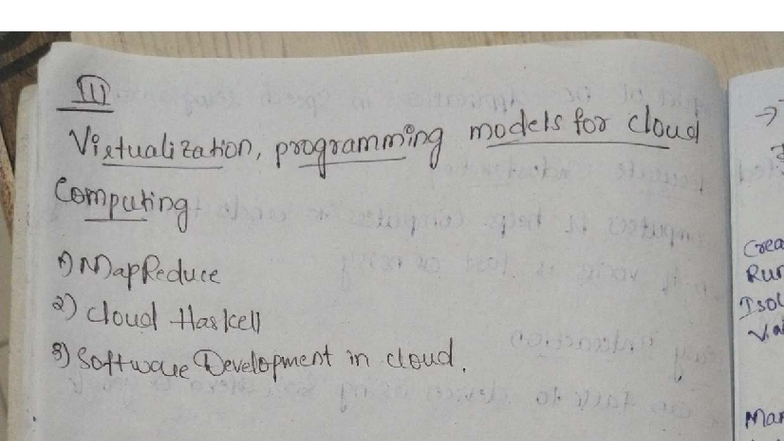 III
Virtualization, programming models for cloud
Computing
1) MapReduce
2) Cloud Haskell
3) Software Development in cloud.
→
Crea
Run
Isol
Man